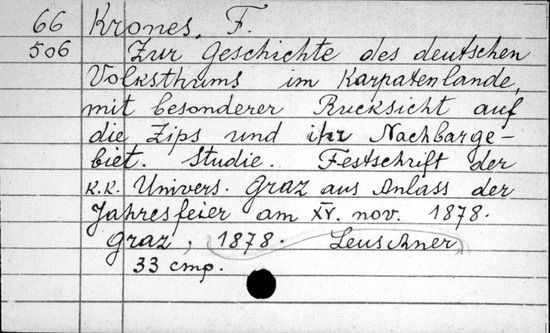 66 Krones, F.
506 Zur Geschichte des deutschen
Volksthums im Karpatenlande,
mit besonderer Rucksicht auf
die Zips und ihr Nachbarge-
biet. Studie. Festschrift der
K.K. Univers. Graz aus Anlass der
Jahresfeier am XV. nov. 1878.
Graz, 1878. Leuschner
33 cmp.